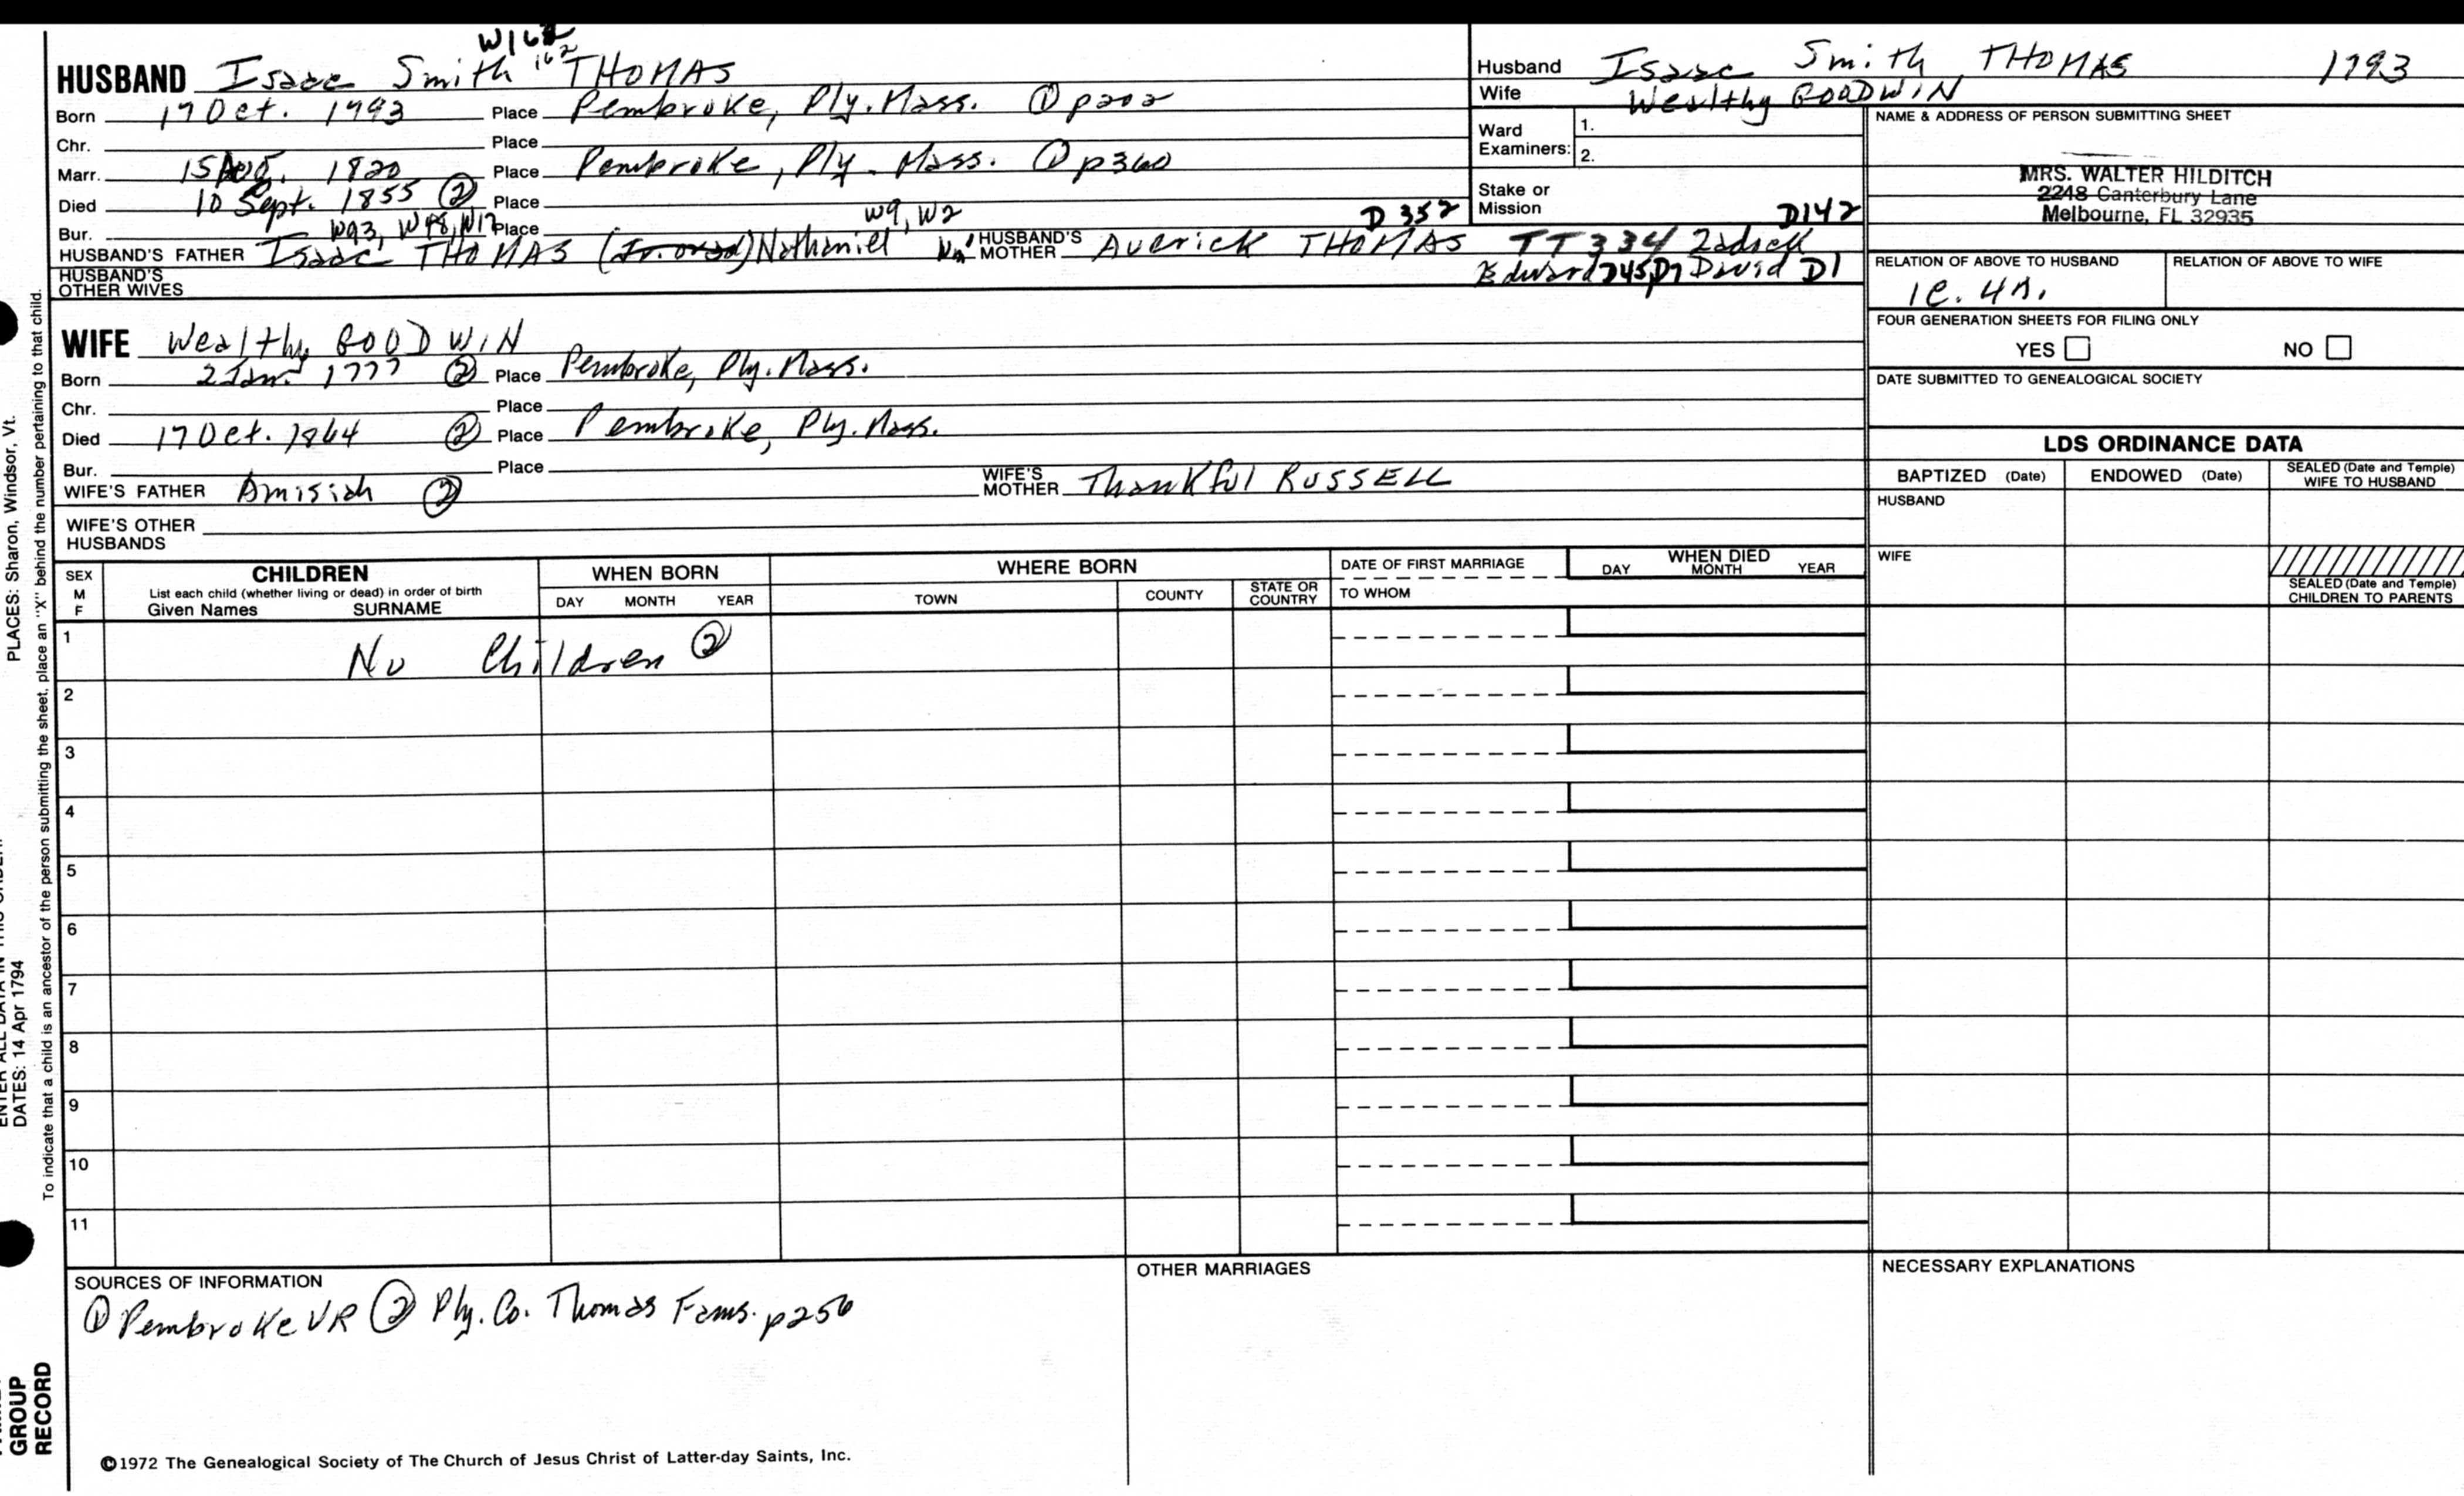 W162
HUSBAND Isaac Smith 162 THOMAS
Born 17 Oct. 1793 Place Pembroke, Ply. Mass. ① p202
Chr. Place
Marr. 15 Aug. 1820 Place Pembroke, Ply. Mass. ① p360
Died 10 Sept. 1855 ② Place
Bur. W93, W48, W17 Place W9, W2 D352
HUSBAND'S FATHER Isaac THOMAS Nathaniel Wm HUSBAND'S MOTHER Averick THOMAS TT334 Zadock
Edward D45, D7 David D1
HUSBAND'S OTHER WIVES
Husband Isaac Smith THOMAS 1793
Wife Wealthy GOODWIN
Ward Examiners: 1.
2.
Stake or Mission D142
NAME & ADDRESS OF PERSON SUBMITTING SHEET
MRS. WALTER HILDITCH
2248 Canterbury Lane
Melbourne, FL 32935
RELATION OF ABOVE TO HUSBAND RELATION OF ABOVE TO WIFE
1C. 4R.
FOUR GENERATION SHEETS FOR FILING ONLY
YES NO
DATE SUBMITTED TO GENEALOGICAL SOCIETY
WIFE Wealthy GOODWIN
Born 2 Jan. 1777 ② Place Pembroke, Ply. Mass.
Chr. Place
Died 17 Oct. 1864 ② Place Pembroke, Ply. Mass.
Bur. Place
WIFE'S FATHER Amisiah ② WIFE'S MOTHER Thankful RUSSELL
WIFE'S OTHER HUSBANDS
LDS ORDINANCE DATA
BAPTIZED (Date) ENDOWED (Date) SEALED (Date and Temple) WIFE TO HUSBAND
HUSBAND
WIFE
SEALED (Date and Temple) CHILDREN TO PARENTS
SEX M F CHILDREN WHEN BORN WHERE BORN DATE OF FIRST MARRIAGE WHEN DIED
List each child (whether living or dead) in order of birth
Given Names SURNAME DAY MONTH YEAR TOWN COUNTY STATE OR COUNTRY TO WHOM DAY MONTH YEAR
1 No Children ②
2
3
4
5
6
7
8
9
10
11
SOURCES OF INFORMATION OTHER MARRIAGES NECESSARY EXPLANATIONS
① Pembroke VR ② Ply. Co. Thomas Fams. p256
©1972 The Genealogical Society of The Church of Jesus Christ of Latter-day Saints, Inc.
PLACES: Sharon, Windsor, Vt.
DATES: 14 Apr 1794
To indicate that a child is an ancestor of the person submitting the sheet, place an "X" behind the number pertaining to that child.
GROUP
RECORD